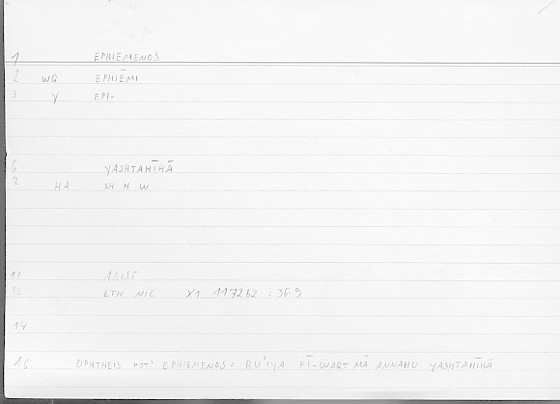 1 EPHIEMENOS
2 WQ EPHIĒMI
3 Y EPI-
6 YASHTAHĪHĀ
7 HA SH H W
11 ARIST
12 ETH NIC X1 1172b2 : 36.9
14
16 OPHTHEIS POT² EPHIEMENOS : RU²IYA FĪ-WAQT MĀ ANNAHU YASHTAHĪHĀ